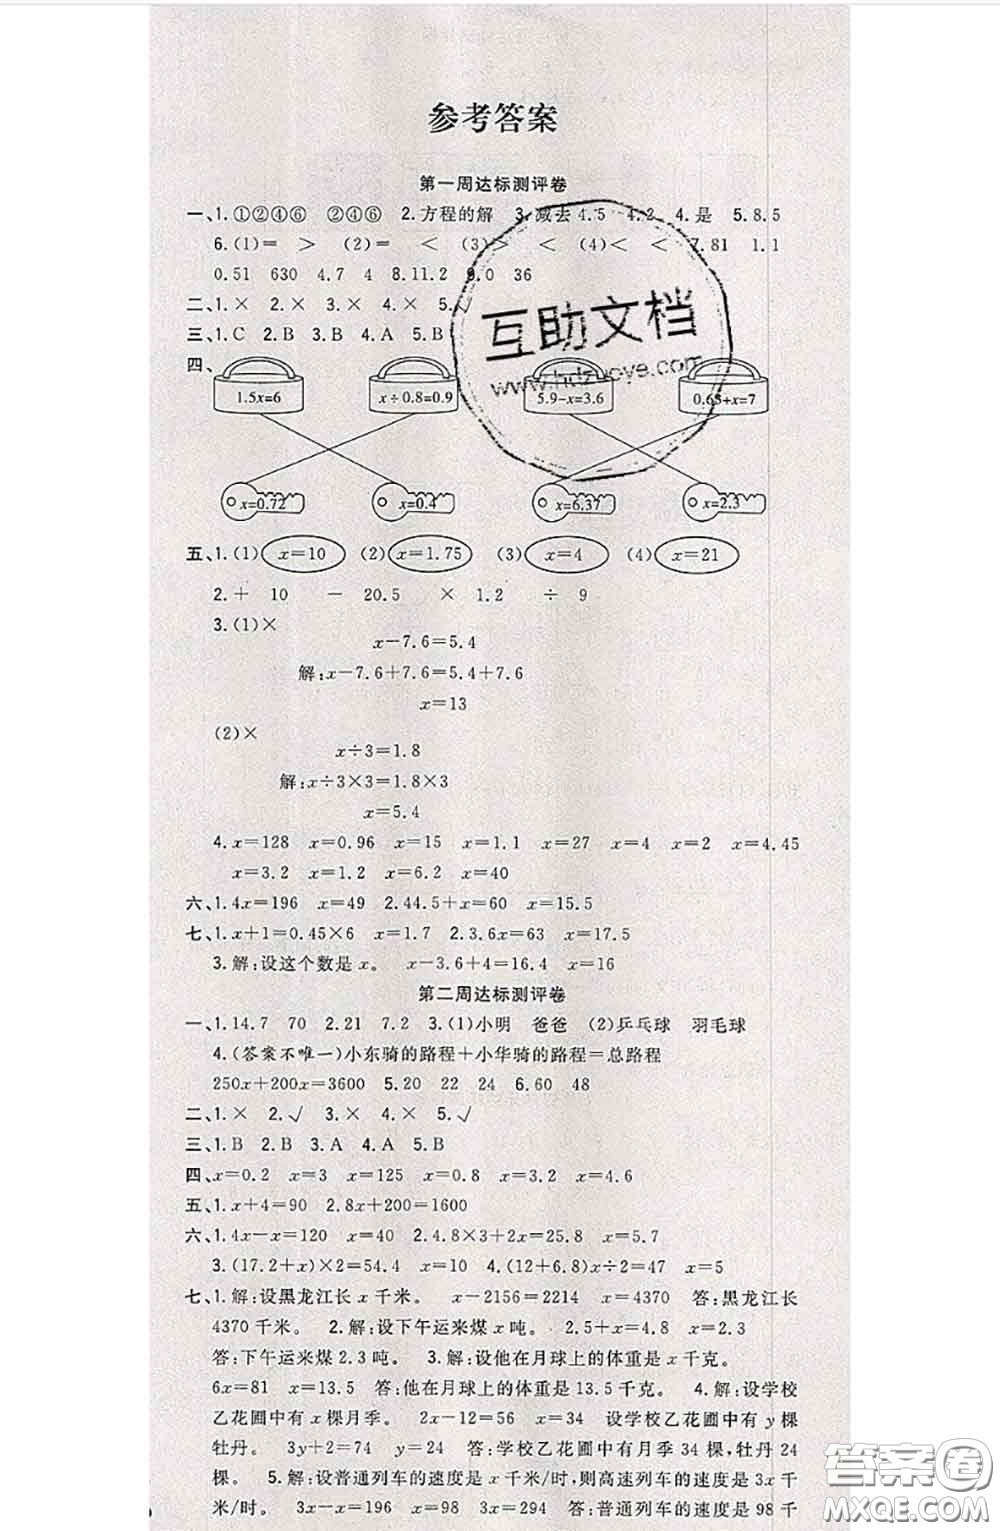 参考答案
第一周达标测评卷
一、1.①②④⑥ ②④⑥ 2.方程的解 3.减去4.5 4.2 4.是 5.8.5
6.(1)= > (2)= < (3)> < (4)< < 7.81 1.1
0.51 630 4.7 4 8.11.2 9.0 36
二、1.× 2.× 3.× 4.× 5.√
三、1.C 2.B 3.B 4.A 5.B
四、
1.5x=6 x÷0.8=0.9 5.9-x=3.6 0.63+x=7
x=0.72 x=0.4 x=6.37 x=2.3
五、1.(1) x=10 (2) x=1.75 (3) x=4 (4) x=21
2.+ 10 - 20.5 × 1.2 ÷ 9
3.(1)×
x-7.6=5.4
解:x-7.6+7.6=5.4+7.6
x=13
(2)×
x÷3=1.8
解:x÷3×3=1.8×3
x=5.4
4.x=128 x=0.96 x=15 x=1.1 x=27 x=4 x=2 x=4.45
x=3.2 x=1.2 x=6.2 x=40
六、1.4x=196 x=49 2.44.5+x=60 x=15.5
七、1.x+1=0.45×6 x=1.7 2.3.6x=63 x=17.5
3.解:设这个数是x。 x-3.6+4=16.4 x=16
第二周达标测评卷
一、1.14.7 70 2.21 7.2 3.(1)小明 爸爸 (2)乒乓球 羽毛球
4.(答案不唯一)小东骑的路程+小华骑的路程=总路程
250x+200x=3600 5.20 22 24 6.60 48
二、1.× 2.√ 3.× 4.× 5.√
三、1.B 2.B 3.A 4.A 5.B
四、x=0.2 x=3 x=125 x=8 x=3.2 x=4.6
五、1.x+4=90 2.8x+200=1600
六、1.4x-x=120 x=40 2.4.8×3+2x=25.8 x=5.7
3.(17.2+x)×2=54.4 x=10 4.(12+6.8)x÷2=47 x=5
七、1.解:设黑龙江长x千米。 x-2156=2214 x=4370 答:黑龙江长
4370千米。 2.解:设下午运来煤x吨。 2.5+x=4.8 x=2.3
答:下午运来煤2.3吨。 3.解:设他在月球上的体重是x千克。
6x=81 x=13.5 答:他在月球上的体重是13.5千克。 4.解:设学校
乙花圃中有x棵月季。 2x-12=56 x=34 设学校乙花圃中有y棵
牡丹。 3y+2=74 y=24 答:学校乙花圃中有月季34棵,牡丹24
棵。 5.解:设普通列车的速度是x千米/时,则高速列车的速度是3x千
米/时。 3x-x=196 x=98 3x=294 答:普通列车的速度是98千
互助文档
www.hdzuoye.com
答案卷
MXQE.COM